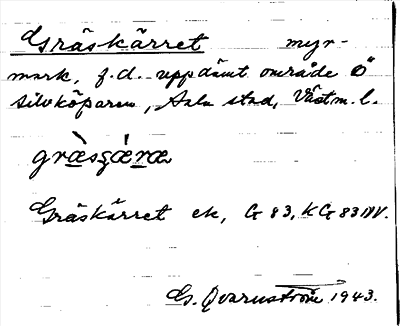 Gräskärret myr-
mark, f.d. uppdämt område Ö
Silvköparen, Sala stad, Västm. l.
Gräskärret ek, G 83, KG 83 NV.
G. Qvarnström 1943.